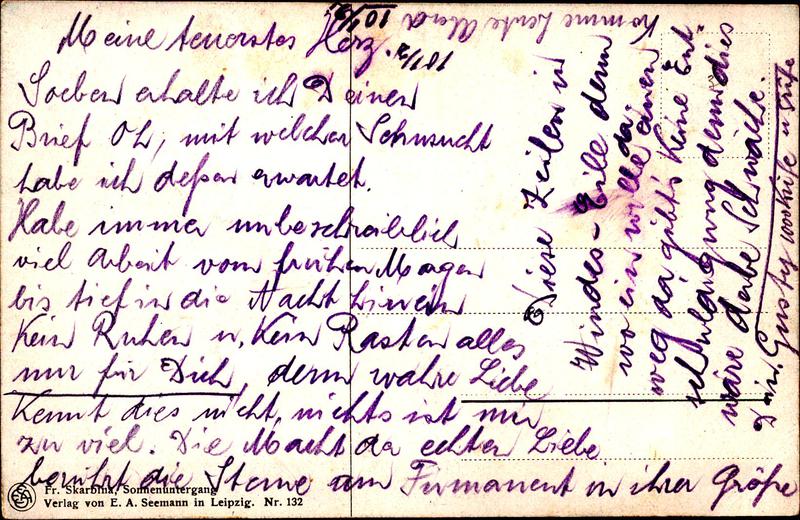 Meine teuerstes Herz.
Soeben erhalte ich Deinen
Brief Oh, mit welcher Sehnsucht
habe ich deßen erwartet.
Habe immer unbeschreiblich
viel Arbeit vom frühen Morgen
bis tief in die Nacht hinein
Kein Ruhen u. Kein Rasten alles
nur für Dich, denn wahre Liebe
Kennt dies nicht, nichts ist mir
zu viel. Die Macht da echten Liebe
berührt die Sterne am Firmament in ihrer Größe
Diese Zeilen in
Windes-Eile denn
wo ein wille da
einen
weg da gibt's Keine Ent
schuldigung denn dies
wäre derbe Schwäche.
Dein Gusty
Komme heute Abend
Fr. Skarbina, Sonnenuntergang
Verlag von E. A. Seemann in Leipzig. Nr. 132